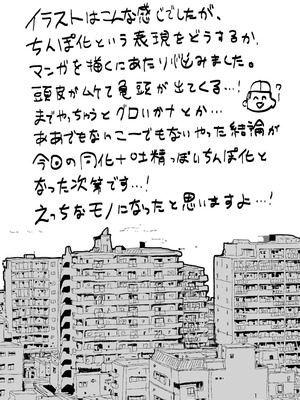 イラストはこんな感じでしたが、
ちんぽ化という表現をどうするか、
マンガを描くにあたり小悩みました。
頭皮がムケて亀頭が出てくる…!
までやっちゃうとグロいかナとか…
ああでもないこーでもないやった結論が
今回の同化+ロは精っぽいちんぽ化と
なった次第です…!
えっちなモノになったと思いますよ…!
?